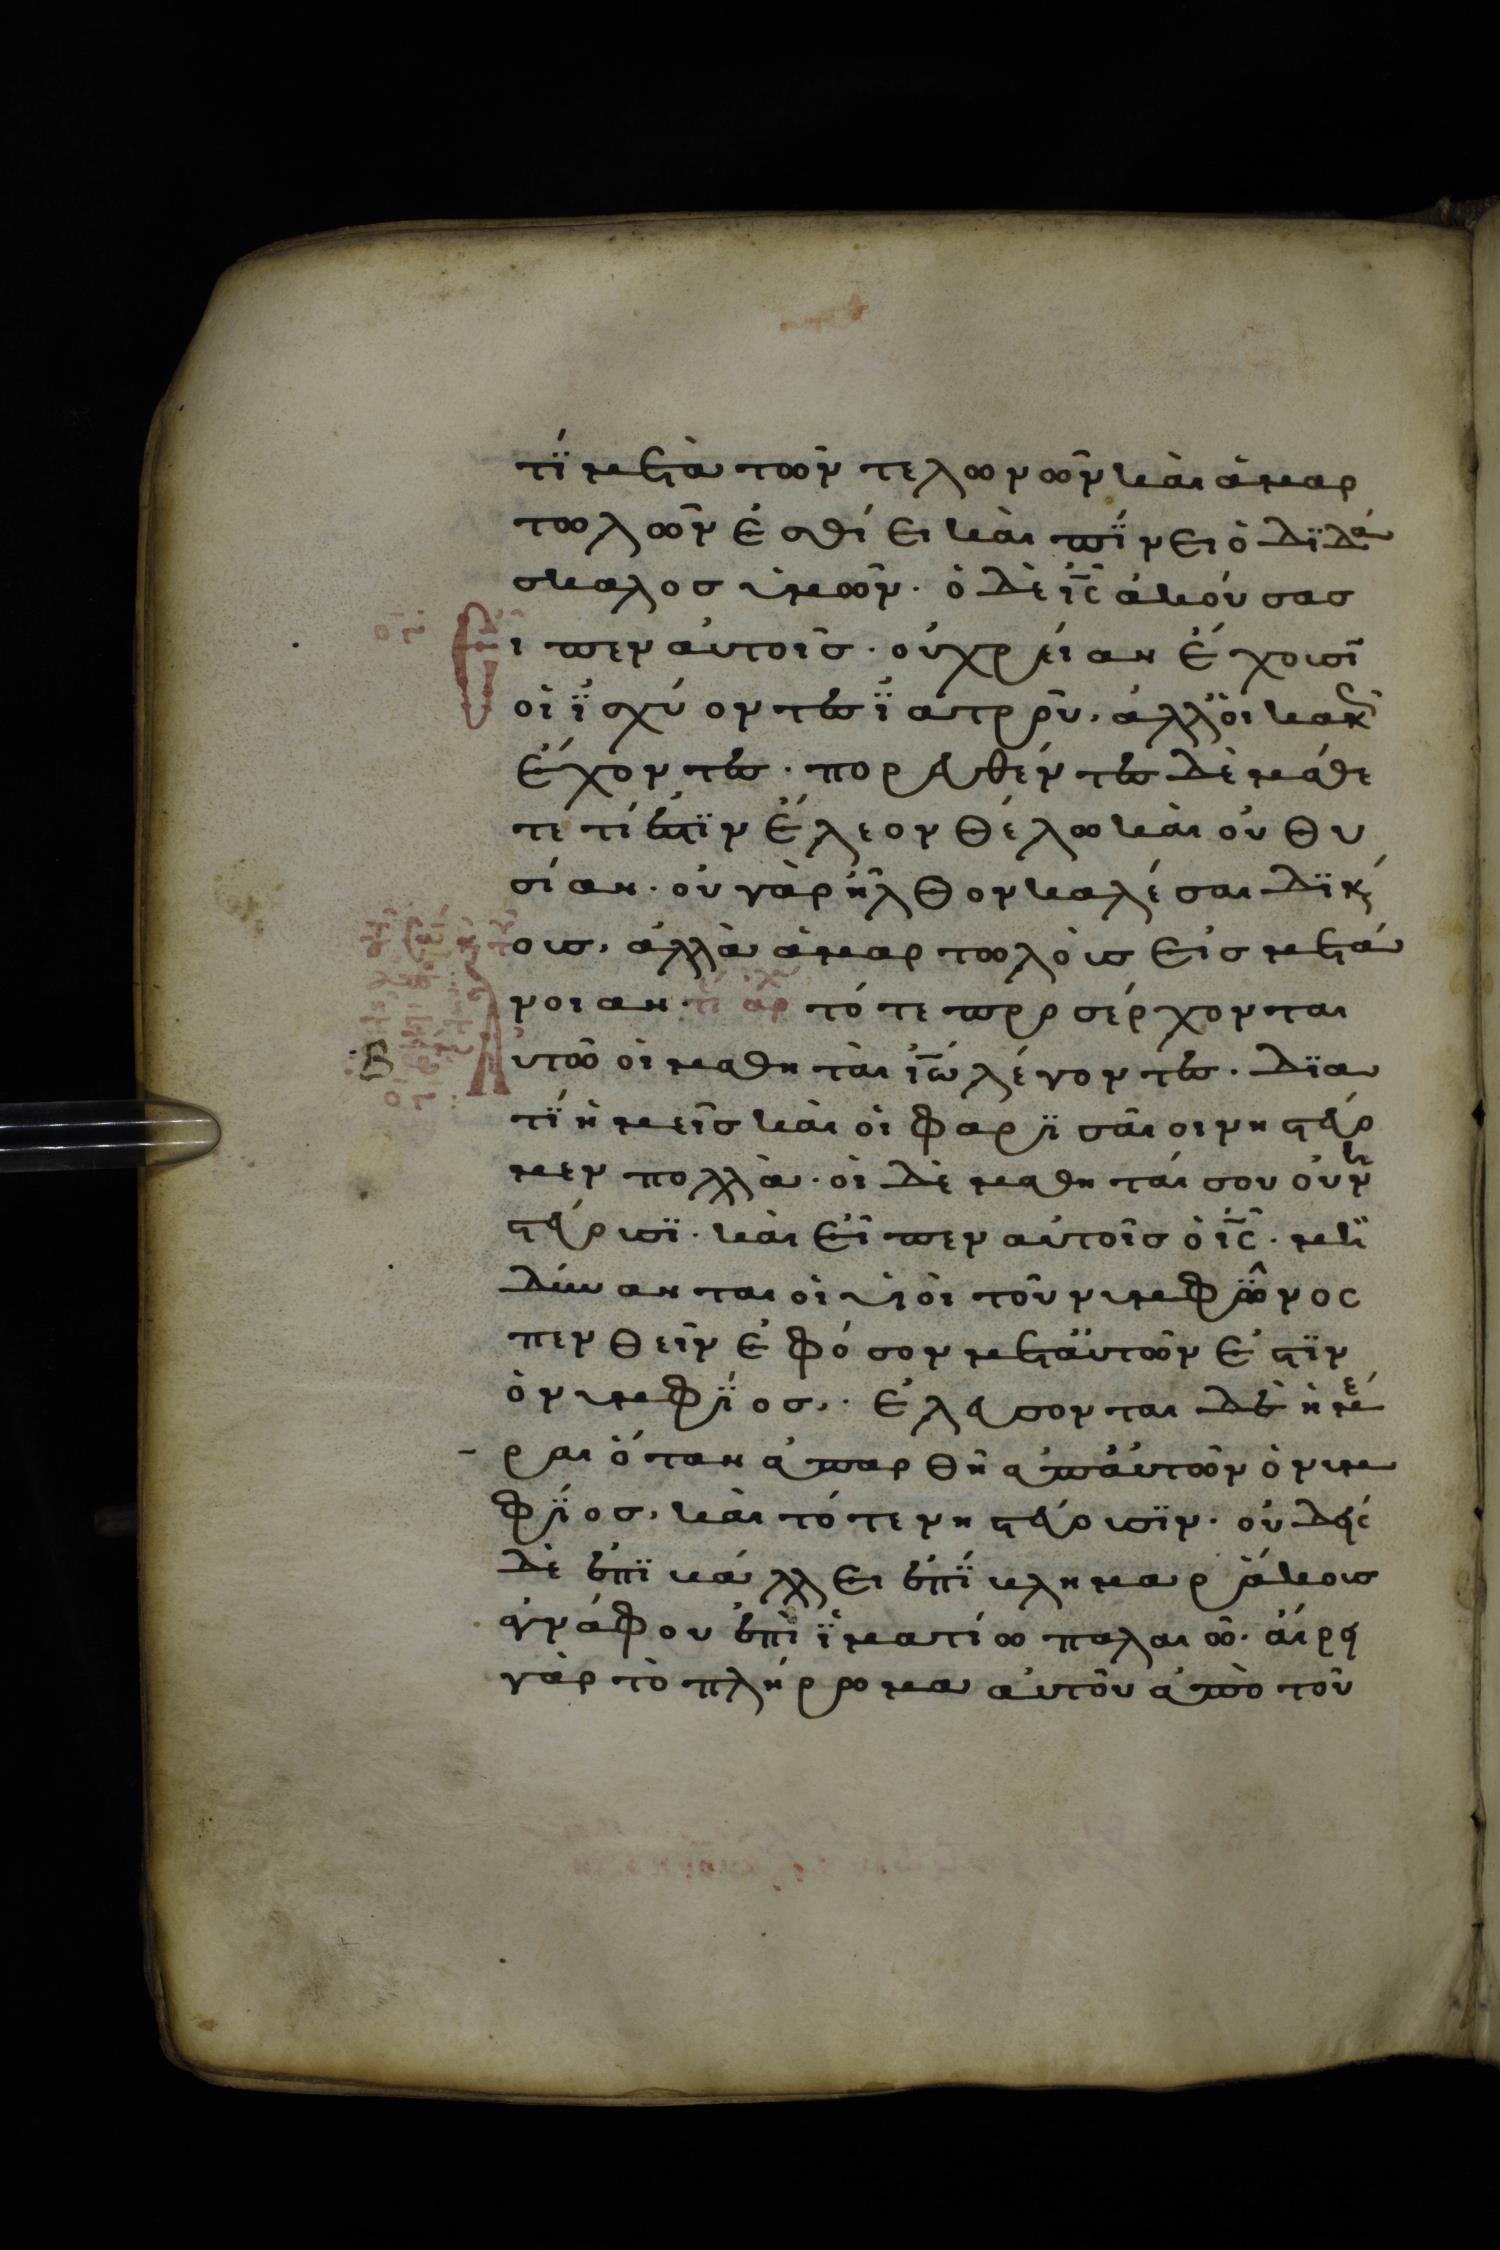 τί μετὰ τῶν τελωνῶν καὶ ἁμαρ
τωλῶν ἐσθίει καὶ πίνει ὁ διδά
σκαλος ὑμῶν· ὁ δὲ ις ἀκούσας
Ειπεν αὐτοῖς· οὐ χρείαν ἔχουσι
οἱ ἰσχύοντες ἰατροῦ, ἀλλ' οἱ κακῶς
ἔχοντες· πορευθέντες δὲ μάθε
τε τί ἐστιν ἔλεον θέλω καὶ οὐ θυ
σίαν· οὐ γὰρ ἦλθον καλέσαι δικαί
ους, ἀλλὰ ἁμαρτωλοὺς εἰς μετά
νοιαν· τέ ἀρχ τότε προσέρχονται
Αὐτῶ οἱ μαθηταὶ ιω λέγοντες· δια
τί ἡμεῖς καὶ οἱ φαρισαῖοι νηστεύο
μεν πολλὰ· οἱ δὲ μαθηταί σου οὐ νη
στεύουσι· καὶ εἶπεν αὐτοῖς ὁ ις· μὴ
δύνανται οἱ υἱοὶ τοῦ νυμφῶνος
πενθεῖν ἐφ' ὅσον μετ' αὐτῶν ἐστιν
ὁ νυμφίος· ἐλεύσονται δὲ ἡμέ
ραι ὅταν ἀπαρθῆ ἀπ' αὐτῶν ὁ νυμ
φίος, καὶ τότε νηστεύουσιν· οὐδεὶς
δὲ ἐπιβάλλει ἐπίβλημα ῥάκους
ἀγνάφου ἐπὶ ἱματίω παλαιῶ· αἴρει
γὰρ τὸ πλήρωμα αὐτοῦ ἀπὸ τοῦ